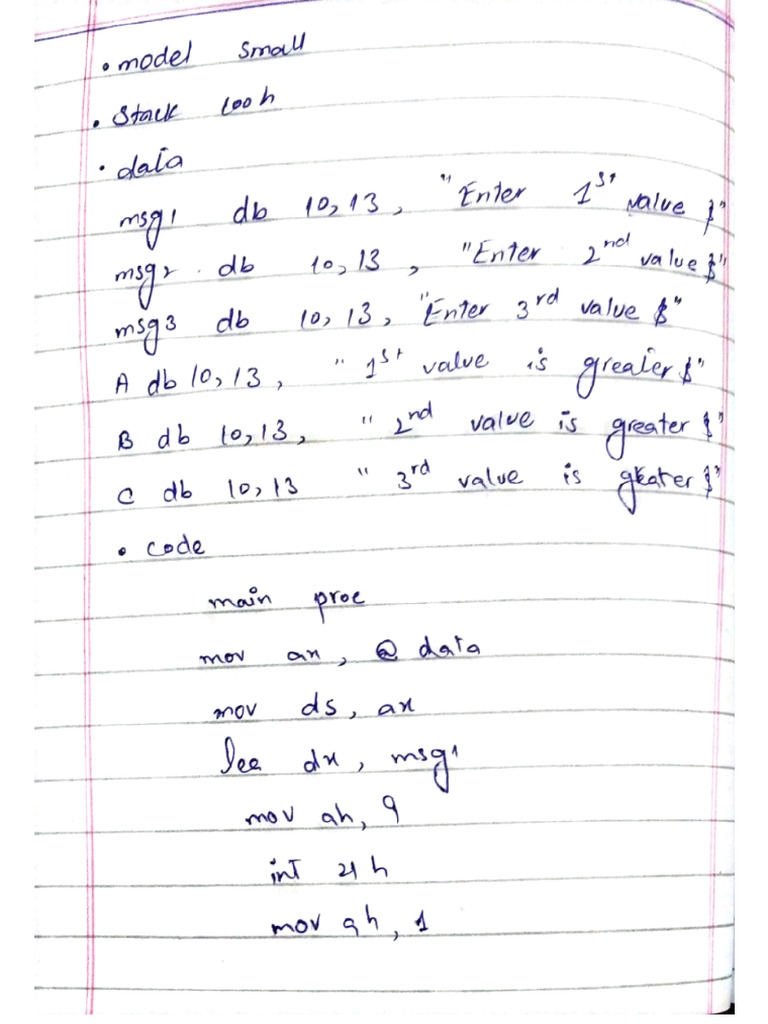 .model small
.stack 100h
.data
msg1 db 10,13, "Enter 1st value $"
msg2 db 10,13, "Enter 2nd value $"
msg3 db 10,13, "Enter 3rd value $"
A db 10,13, "1st value is greater $"
B db 10,13, "2nd value is greater $"
C db 10,13 "3rd value is greater $"
.code
main proc
mov ax, @data
mov ds, ax
lea dx, msg1
mov ah, 9
int 21h
mov ah, 1